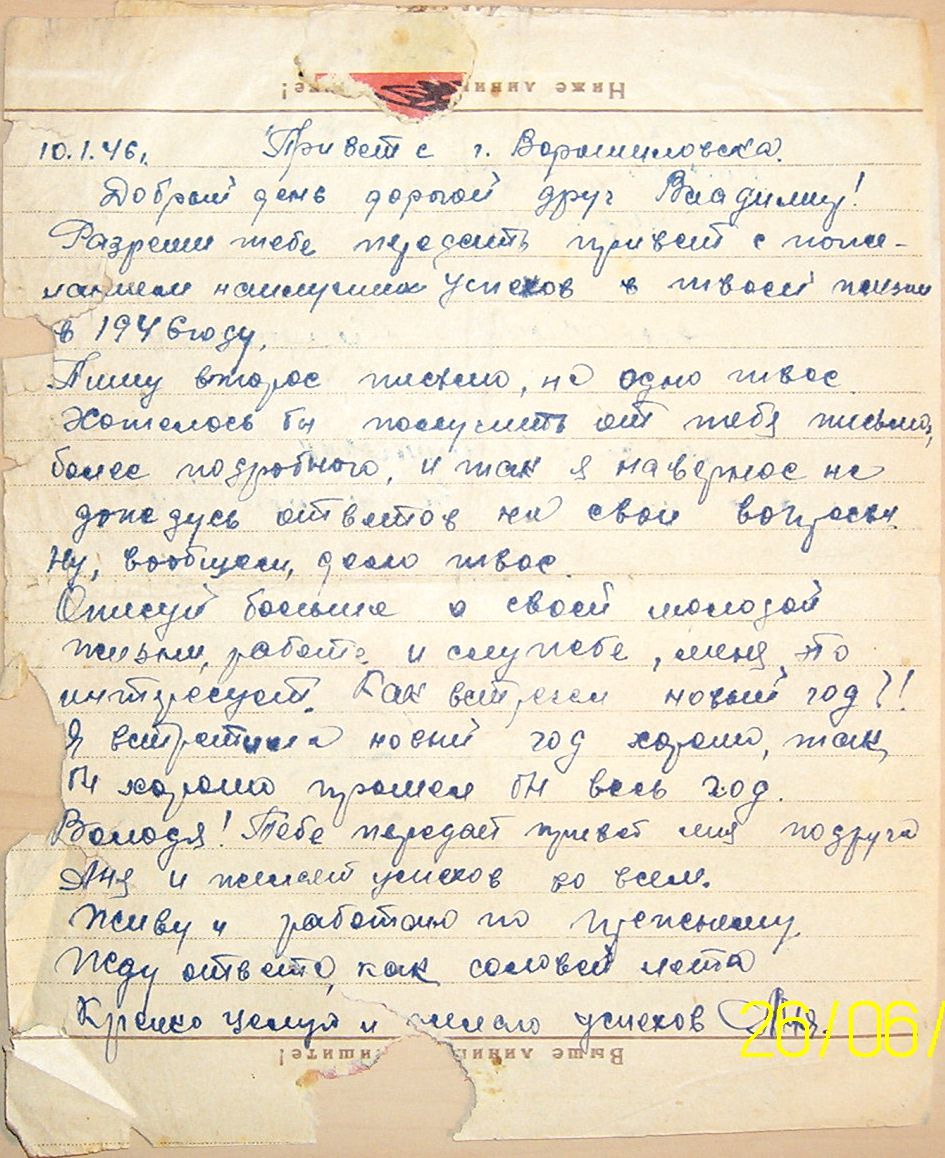 Ниже лини
10.1.46. Привет с г. Ворошиловска.
Добрый день дорогой друг Владимир!
Разреши тебе передать привет с поже-
ланием наилучших успехов в твоей жизни
в 1946 году.
Пишу второе письмо, на одно твое
Хотелось бы получить от тебя письмо,
более подробного, и так я наверное не
дождусь ответов на свои вопросы.
Ну, вообщем, дело твое.
Описуй больше о своей молодой
жизни, работе и службе, меня это
интересует. Как встречал новый год?!
Я встретила новый год хорошо, так
бы хорошо прошел бы весь год.
Володя! Тебе передает привет моя подруга
Аня и желает успехов во всем.
Живу и работаю по прежнему.
Жду ответа, как соловей лета
Крепко целую и желаю успехов Аня.
26/06/
Выше лини ишите!